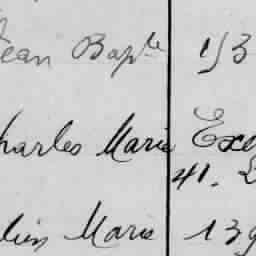 ean Bapte 153
harles Marie Exe
41.
lien Marie 139